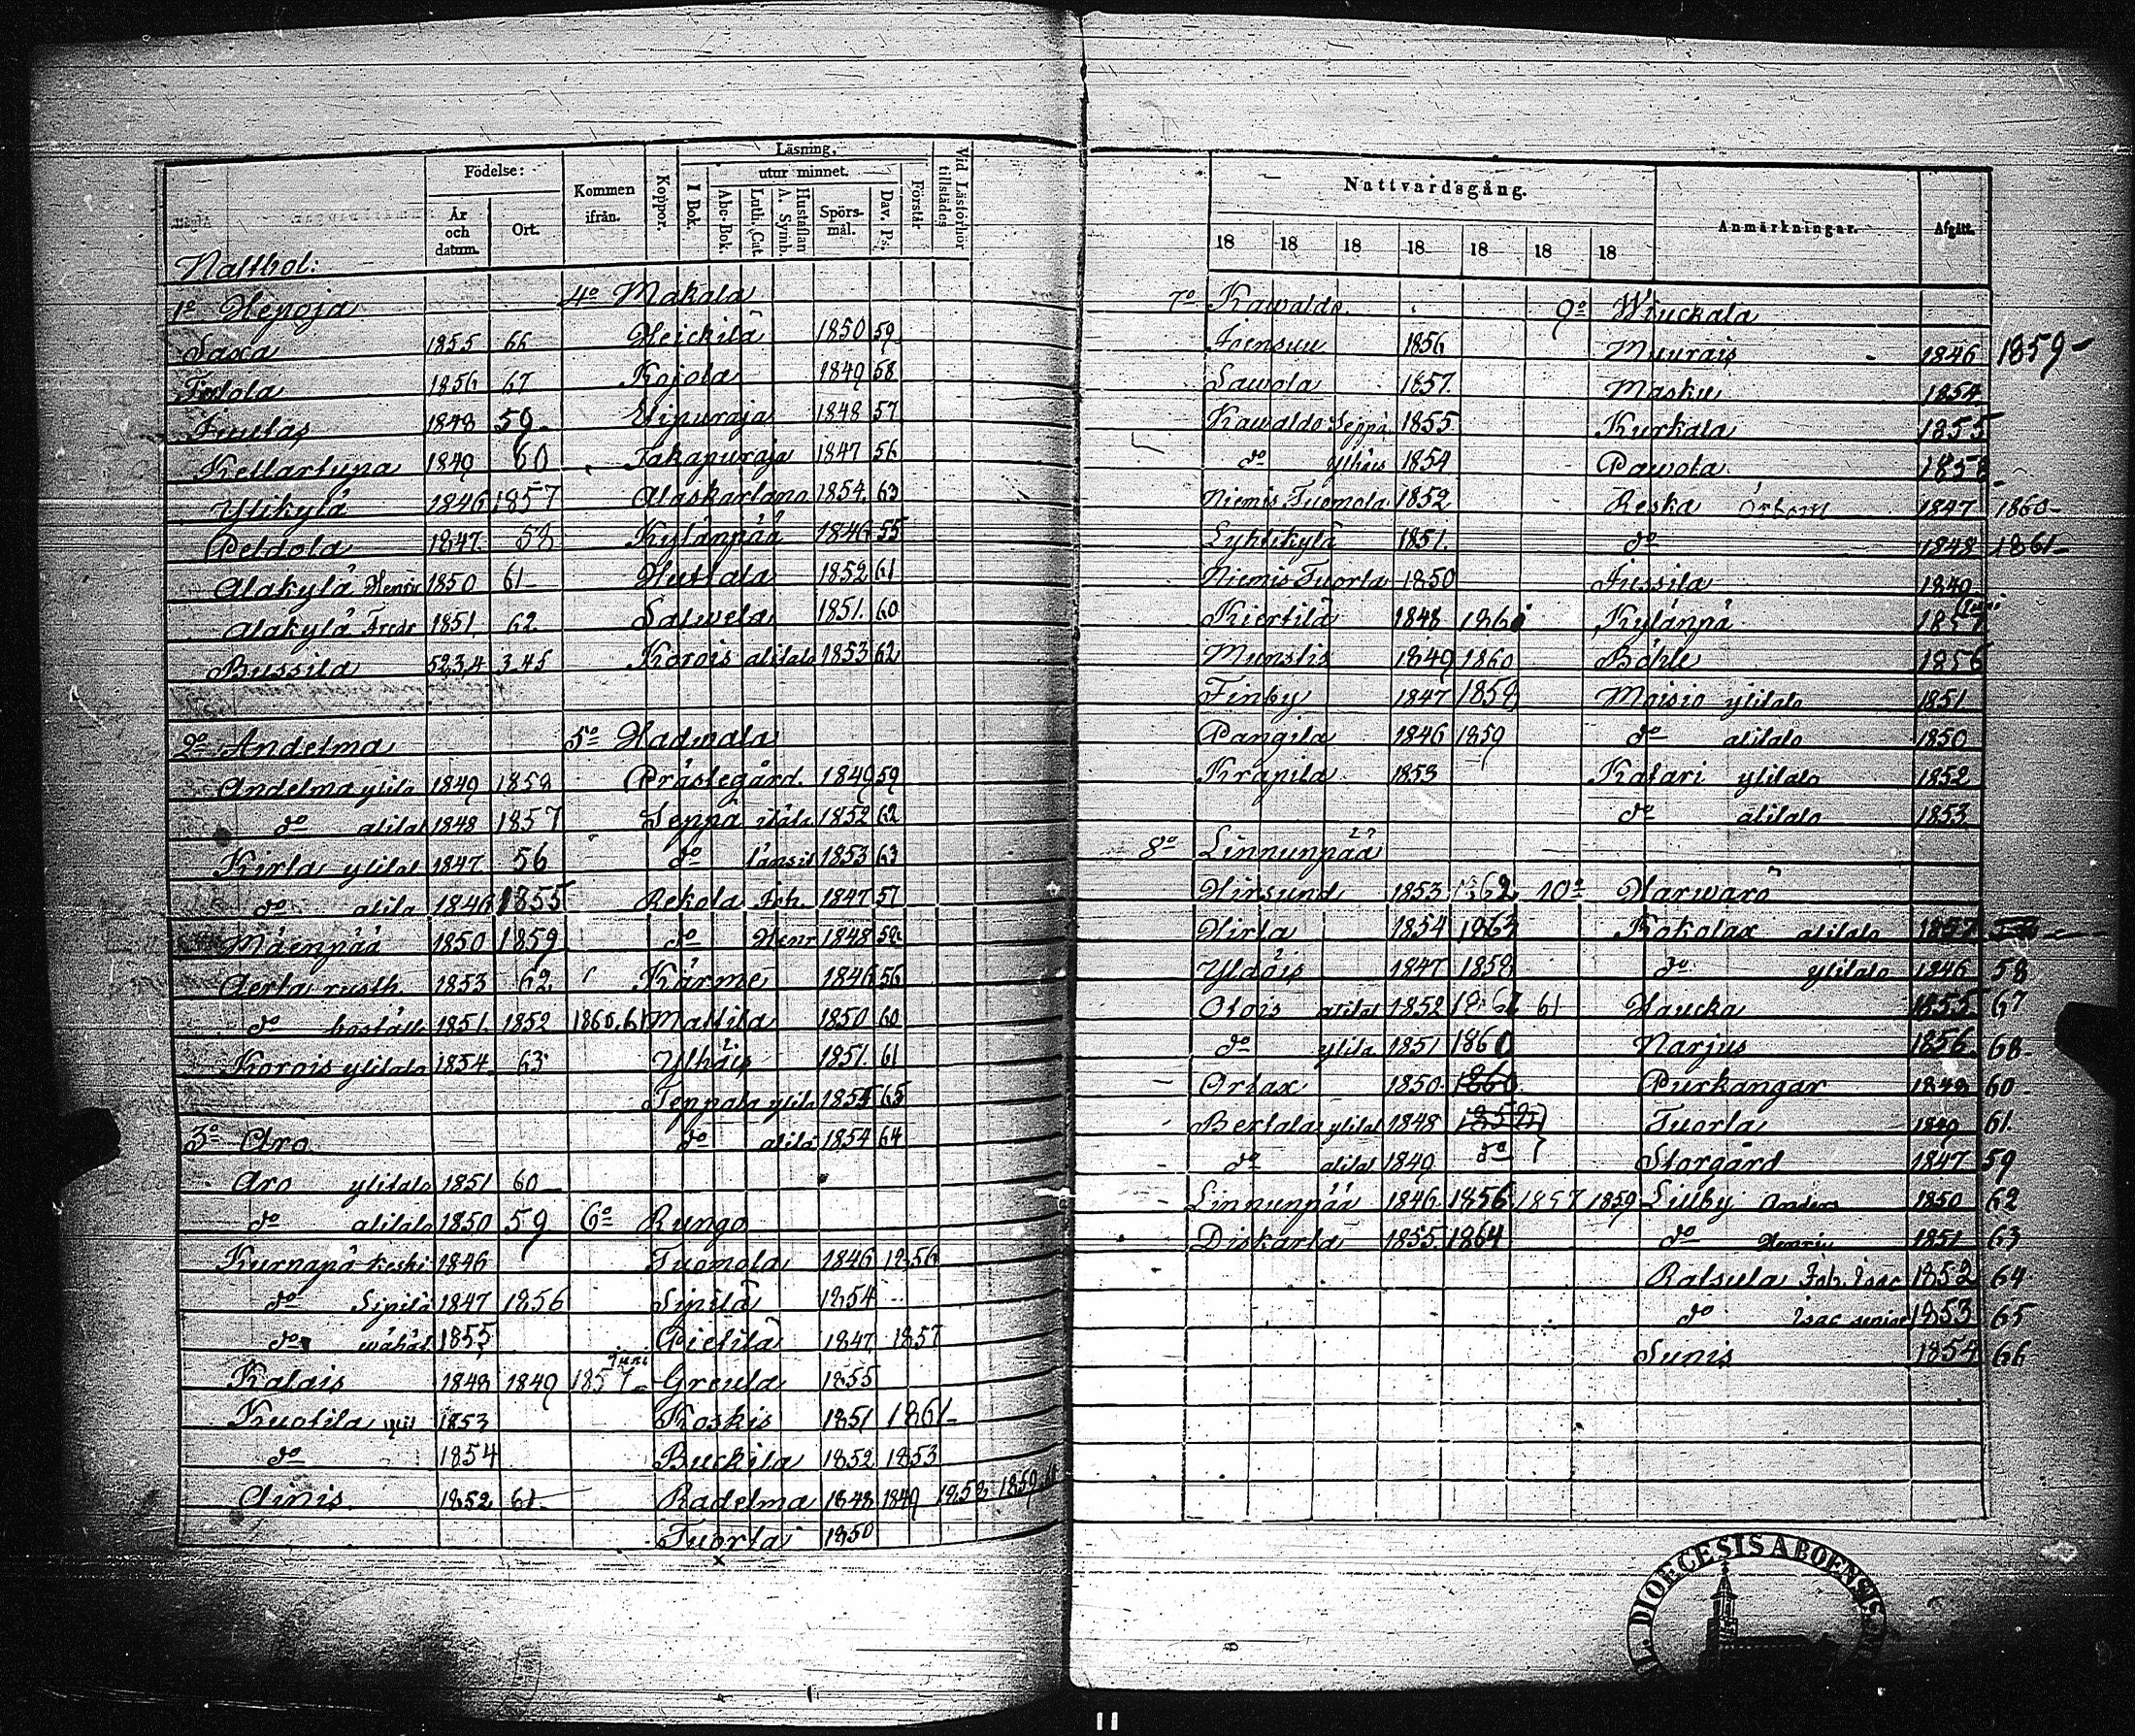 Födelse:
År och datum.
Ort.
Kommen ifrån.
Koppor.
Läsning.
I Bok.
utur minnet.
Abc-Bok.
Luth. Cat.
Hustaflan A. Symb.
Spörs-mål.
Dav. Ps.
Förstår
Vid Läsförhör tillstädes
Natthol:
1º Hepoja
Saxa 1855 66
1856 67
1848 59
Kellartupa 1849 60
Ylikylä 1846 1857
Peldola 1847 58
Alakylä Henric 1850 61
Alakylä Fredr 1851 62
Bussila 52,3,4 3.45
2º Andelma
Andelma ylita 1849 1858
dº alital 1848 1857
Kirla ylital 1847 56
dº alita 1846 1855
Mäenpää 1850 1859
Aerla rusth. 1853 62
dº boställe 1851 1852 1860.61
Korois ylitalo 1854 63
3º Aro
Aro ylitalo 1851 60
dº alitalo 1850 59
Kurnapä Keski 1846
dº Sipilä 1847 1856
dº wähät 1855
Kalais 1848 1849 1857 juni
Kuotila 1853
dº 1854
Ainis 1852 61
4º Makala
Heickilä 1850 59
Kojola 1849 58
Etipuraja 1848 57
Takapuraja 1847 56
Alaskartano 1854 63
Kylänpää 1846 55
Huttala 1852 61
Salwela 1851 60
Korois alitalo 1853 62
5º Hadmala
Prästegård 1849 59
Seppä itäla 1852 62
dº länsit 1853 63
Rekola Joh. 1847 57
dº Henr 1848 58
Kärme 1846 56
Mattila 1850 60
Ylhäis 1851 61
Teppala ylita 1855 65
dº alita 1854 64
6º Rungo
Tuomola 1846 1856
Sipilä 1854
Pietilä 1847 1857
Greula 1855
Koskis 1851 1861
Buckila 1852 1853
Radelma 1848 1849 1858 1859
Tuorla 1850
x
Nattvardsgång.
18 18 18 18 18 18 18
Anmärkningar.
Afgått.
7º Kawaldo
Joensuu 1856
Sawola 1857
Kawaldo Seppä 1855
dº Ylhäis 1854
Niemis Tuomola 1852
Lyhtikylä 1851
Niemis Tuorla 1850
Kiertilä 1848 1860
Munstis 1849 1860
Finby 1847 1859
Pangila 1846 1859
Krapila 1853
8º Linnunpää
Hirsund 1853 1862
Hirla 1854 1863
Yldäis 1847 1858
Otois alital 1852 1861 61
dº ylita 1851 1860
Ortax 1850 1860
Bertala ylital 1848
dº alital 1849 dº
Linnunpää 1846 1856 1857 1859
Diskarla 1855 1864
9º Wiuckala
Muurais 1846 1859
Masku 1854
Kurkala 1855
Pawola 1858
Reska 1847 1860
dº 1848 1861
Jussila 1849
Kylänpä 1857
Böhle 1856
Moisio ylitalo 1851
dº alitalo 1850
Katari ylitalo 1852
dº alitalo 1853
10º Harwarö
Kokolax alitalo 1857
dº ylitalo 1846 58
Haucka 1855 67
Narjus 1856 68
Purkangar 1848 60
Tuorla 1849 61
Storgård 1847 59
Lillby Anders 1850 62
dº Henric 1851 63
Ratsula Joh. Isac 1852 64
dº Isac senior 1853 65
Sunis 1854 66
DIOECESIS ABOENSIS
11